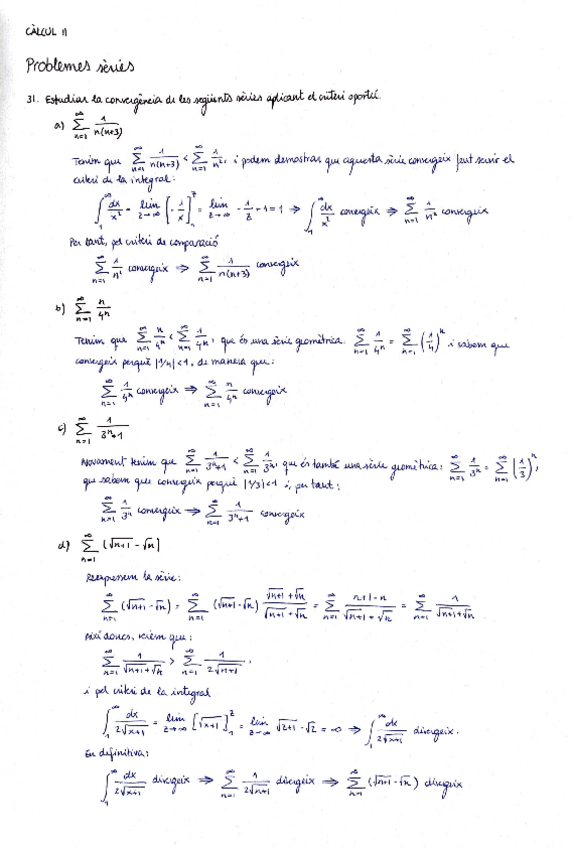 CÀLCUL II
Problemes sèries
31. Estudiar la convergència de les següents sèries aplicant el criteri oportú.
a) ∑_{n=1}^∞ 1/(n(n+3))
Tenim que ∑_{n=1}^∞ 1/(n(n+3)) < ∑_{n=1}^∞ 1/n², i podem demostrar que aquesta sèrie convergeix fent servir el
criteri de la integral:
∫_1^∞ dx/x² = lim_{z→∞} [-1/x]_1^z = lim_{z→∞} -1/z + 1 = 1 ⇒ ∫_1^∞ dx/x² convergeix ⇒ ∑_{n=1}^∞ 1/n² convergeix
Per tant, pel criteri de comparació
∑_{n=1}^∞ 1/n² convergeix ⇒ ∑_{n=1}^∞ 1/(n(n+3)) convergeix
b) ∑_{n=1}^∞ n/4ⁿ
Tenim que ∑_{n=1}^∞ n/4ⁿ < ∑_{n=1}^∞ 1/4ⁿ, que és una sèrie geomètrica. ∑_{n=1}^∞ 1/4ⁿ = ∑_{n=1}^∞ (1/4)ⁿ i sabem que
convergeix perquè |1/4|<1, de manera que:
∑_{n=1}^∞ 1/4ⁿ convergeix ⇒ ∑_{n=1}^∞ n/4ⁿ convergeix
c) ∑_{n=1}^∞ 1/(3ⁿ+1)
Novament tenim que ∑_{n=1}^∞ 1/(3ⁿ+1) < ∑_{n=1}^∞ 1/3ⁿ, que és també una sèrie geomètrica: ∑_{n=1}^∞ 1/3ⁿ = ∑_{n=1}^∞ (1/3)ⁿ,
que sabem que convergeix perquè |1/3|<1 i, per tant:
∑_{n=1}^∞ 1/3ⁿ convergeix ⇒ ∑_{n=1}^∞ 1/(3ⁿ+1) convergeix
d) ∑_{n=1}^∞ (√(n+1) - √n)
Reexpressem la sèrie:
∑_{n=1}^∞ (√(n+1) - √n) = ∑_{n=1}^∞ (√(n+1) - √n) (√(n+1) + √n)/(√(n+1) + √n) = ∑_{n=1}^∞ (n+1-n)/(√(n+1) + √n) = ∑_{n=1}^∞ 1/(√(n+1) + √n)
Així doncs, veiem que:
∑_{n=1}^∞ 1/(√(n+1) + √n) > ∑_{n=1}^∞ 1/(2√(n+1)),
i pel criteri de la integral
∫_1^∞ dx/(2√(x+1)) = lim_{z→∞} [√(x+1)]_1^z = lim_{z→∞} √(z+1) - √2 = ∞ ⇒ ∫_1^∞ dx/(2√(x+1)) divergeix.
En definitiva:
∫_1^∞ dx/(2√(x+1)) divergeix ⇒ ∑_{n=1}^∞ 1/(2√(n+1)) divergeix ⇒ ∑_{n=1}^∞ (√(n+1) - √n) divergeix